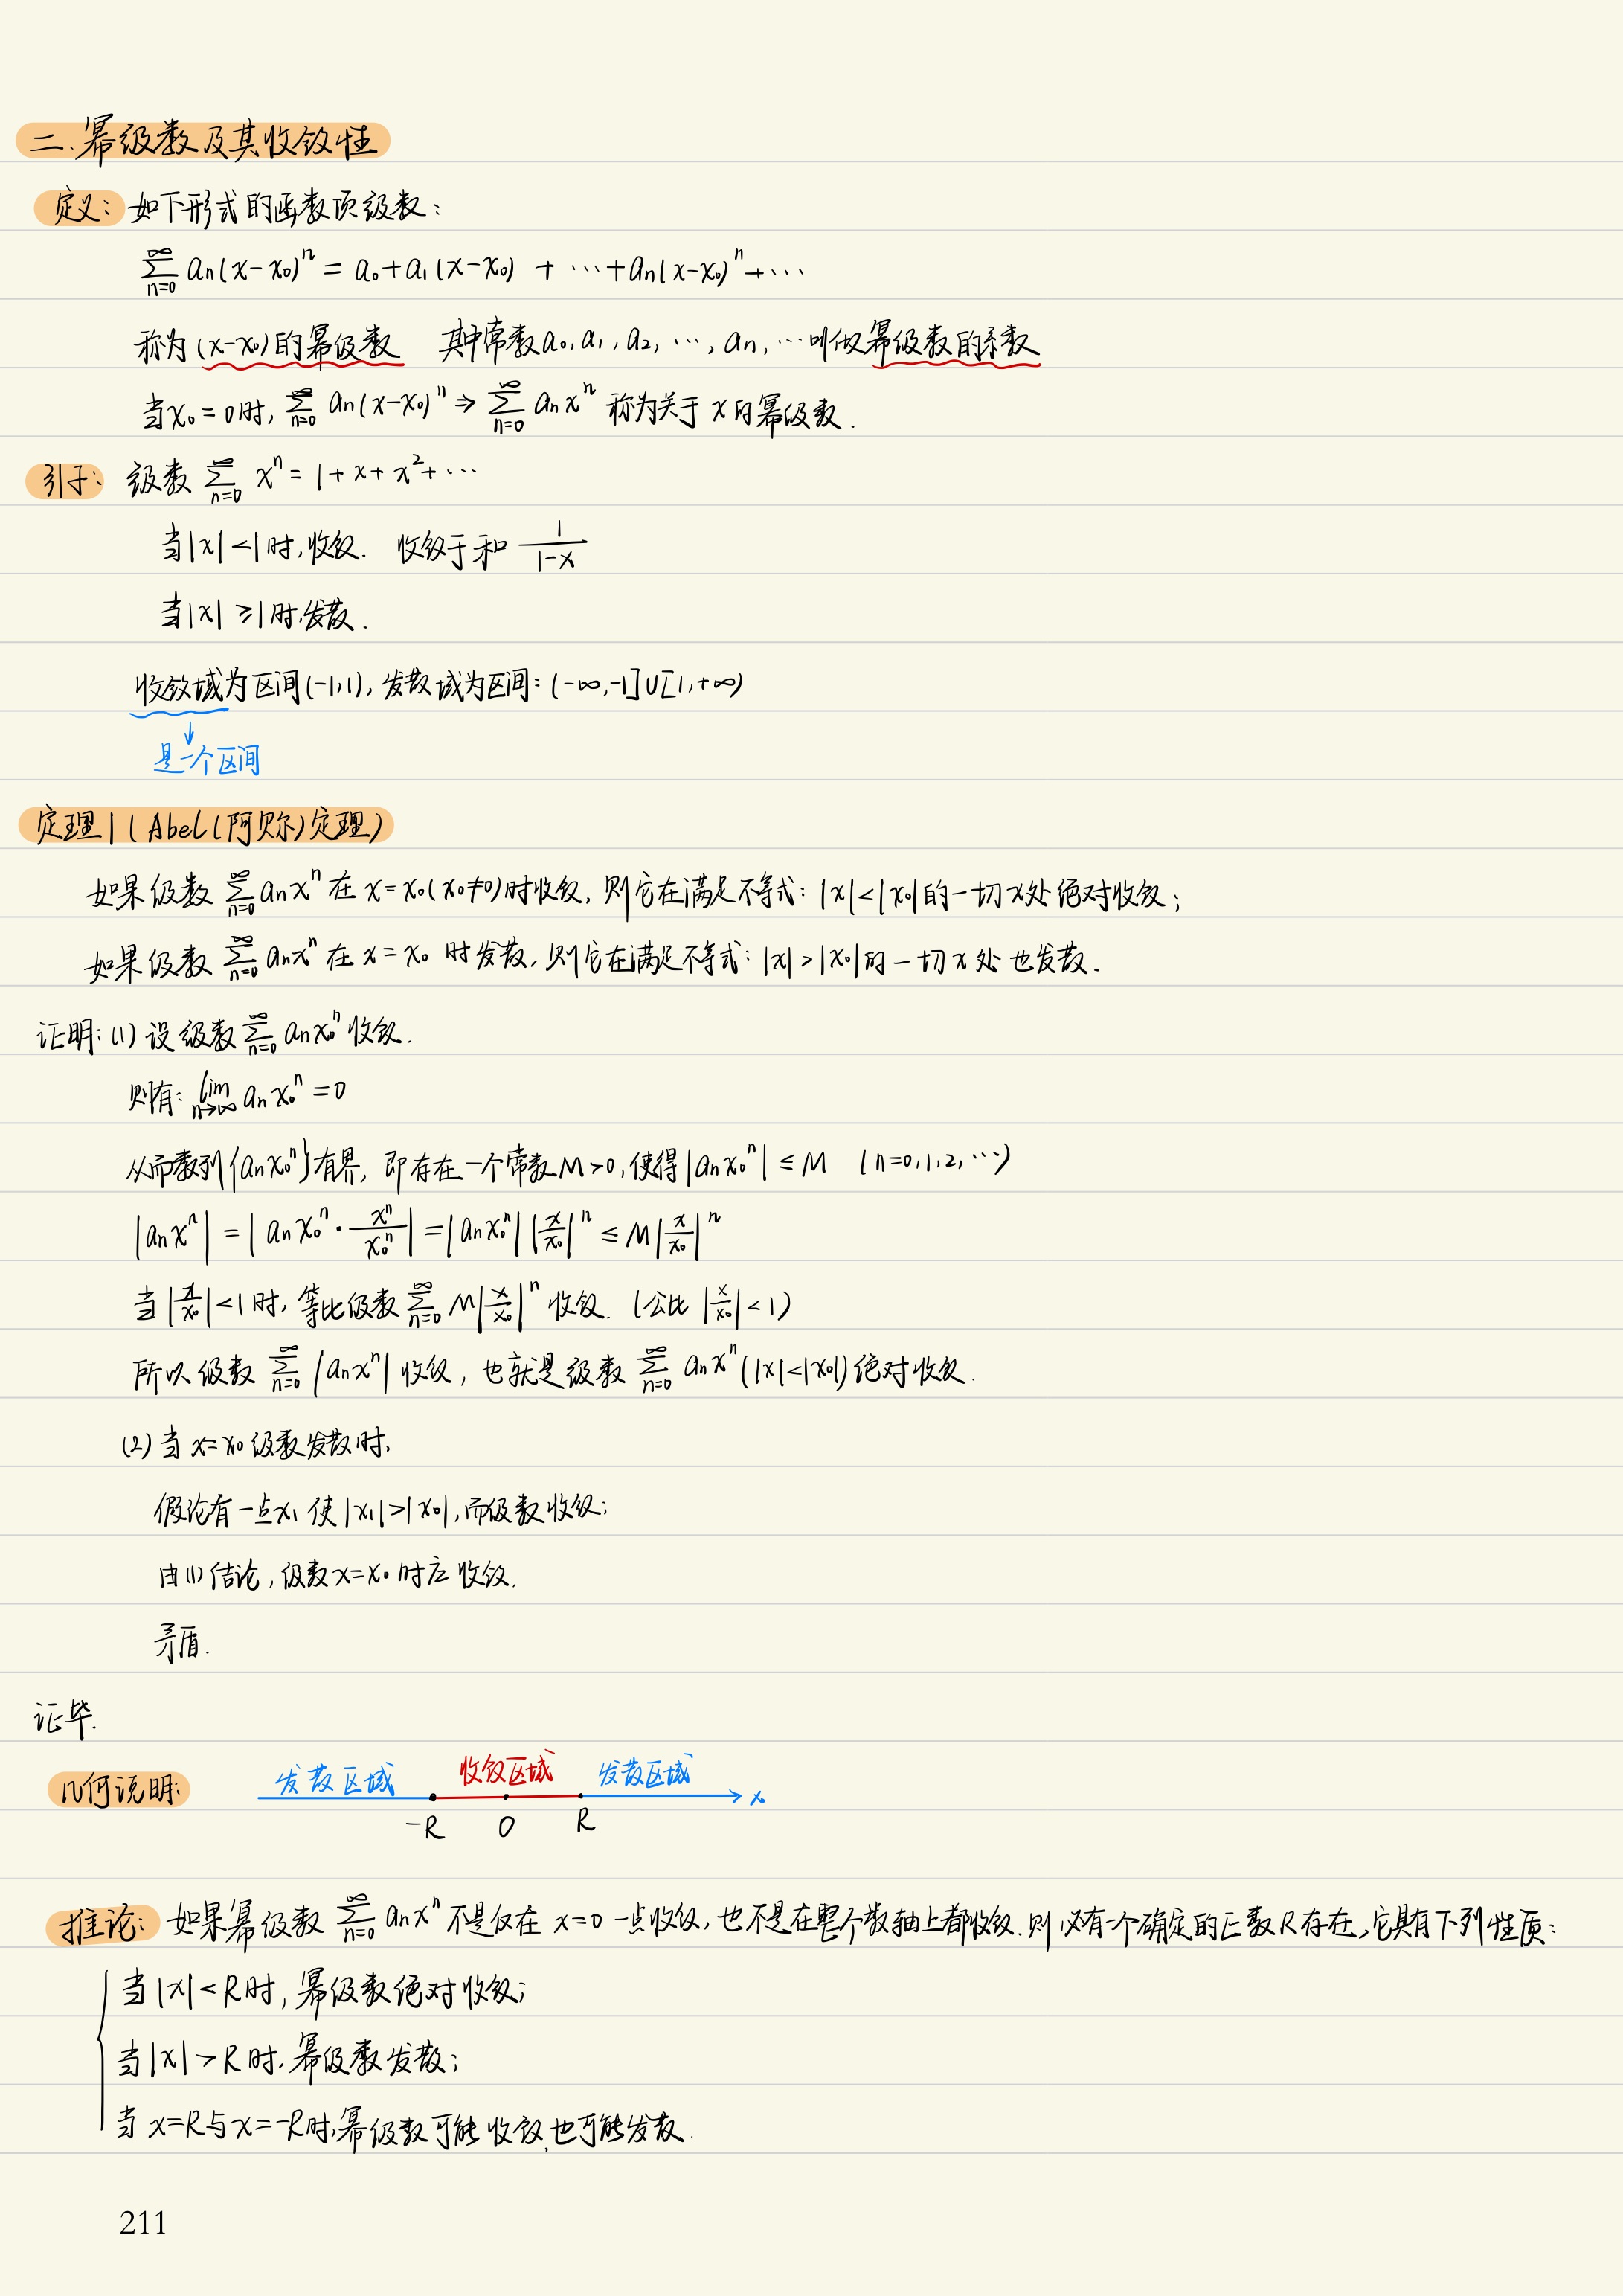 二.幂级数及其收敛性
定义: 如下形式的函数项级数:
∑_{n=0}^{∞} aₙ(x-x₀)ⁿ = a₀+a₁(x-x₀) + ⋯ + aₙ(x-x₀)ⁿ + ⋯
称为(x-x₀)的幂级数 其中常数a₀, a₁, a₂, ⋯, aₙ, ⋯叫做幂级数的系数
当x₀=0时, ∑_{n=0}^{∞} aₙ(x-x₀)ⁿ → ∑_{n=0}^{∞} aₙxⁿ 称为关于x的幂级数.
引子: 级数 ∑_{n=0}^{∞} xⁿ = 1+x+x²+⋯
当|x|<1时,收敛. 收敛于和 1/(1-x)
当|x|≥1时,发散.
收敛域为区间(-1,1), 发散域为区间: (-∞,-1]∪[1,+∞)
↓
是一个区间
定理1 (Abel(阿贝尔)定理)
如果级数 ∑_{n=0}^{∞} aₙxⁿ 在 x=x₀(x₀≠0)时收敛, 则它在满足不等式: |x|<|x₀|的一切x处绝对收敛;
如果级数 ∑_{n=0}^{∞} aₙxⁿ 在 x=x₀ 时发散, 则它在满足不等式: |x|>|x₀|的一切x处也发散.
证明: (1) 设级数 ∑_{n=0}^{∞} aₙx₀ⁿ 收敛.
则有: lim_{n→∞} aₙx₀ⁿ = 0
从而数列{aₙx₀ⁿ}有界, 即存在一个常数M>0, 使得|aₙx₀ⁿ| ≤ M (n=0,1,2,⋯)
|aₙxⁿ| = |aₙx₀ⁿ · xⁿ/x₀ⁿ| = |aₙx₀ⁿ| |x/x₀|ⁿ ≤ M|x/x₀|ⁿ
当|x/x₀|<1时, 等比级数 ∑_{n=0}^{∞} M|x/x₀|ⁿ 收敛. (公比 |x/x₀|<1)
所以级数 ∑_{n=0}^{∞} |aₙxⁿ| 收敛, 也就是级数 ∑_{n=0}^{∞} aₙxⁿ (|x|<|x₀|)绝对收敛.
(2) 当 x=x₀ 级数发散时,
假论有一点x₁ 使|x₁|>|x₀|, 而级数收敛;
由(1)结论, 级数x=x₀时应收敛.
矛盾.
证毕.
几何说明: 发散区域 收敛区域 发散区域 x
-R 0 R
推论: 如果幂级数 ∑_{n=0}^{∞} aₙxⁿ 不是仅在 x=0 一点收敛, 也不是在整个数轴上都收敛. 则必有一个确定的正数R存在, 它具有下列性质:
当|x|<R时, 幂级数绝对收敛;
当|x|>R时, 幂级数发散;
当 x=R与x=-R时,幂级数可能收敛,也可能发散.
211